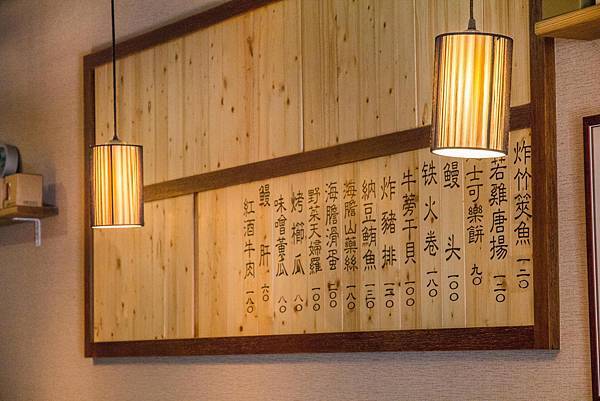 炸竹筴魚 一二〇
若雞唐揚 一三〇
士可樂餅 九〇
鰻头 一〇〇
铁火卷 一八〇
牛蒡干貝 一〇〇
炸豬排 二〇〇
納豆鮪魚 一三〇
海膽山藥絲 一八〇
海膽滑蛋 二〇〇
野菜天婦羅 一〇〇
烤櫛瓜 八〇
味噌薑瓜 八〇
鰻肝 六〇
紅酒牛肉 一八〇